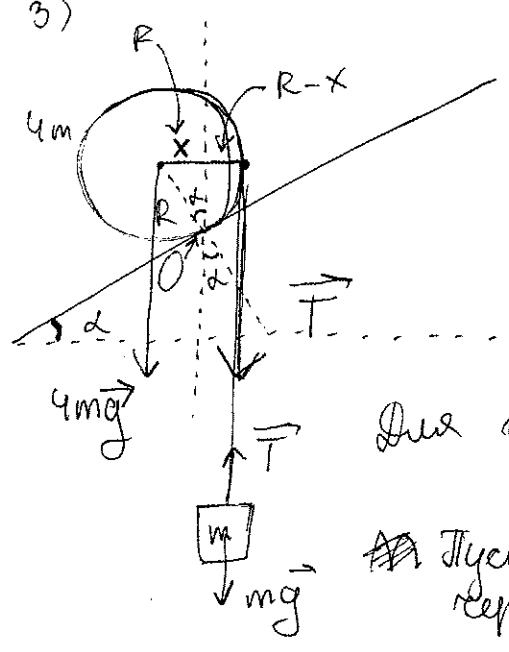 3)
R
R-x
4m
x
R
α
O
α
α
T
4mg
Для
T
m
Пус
mg
чер